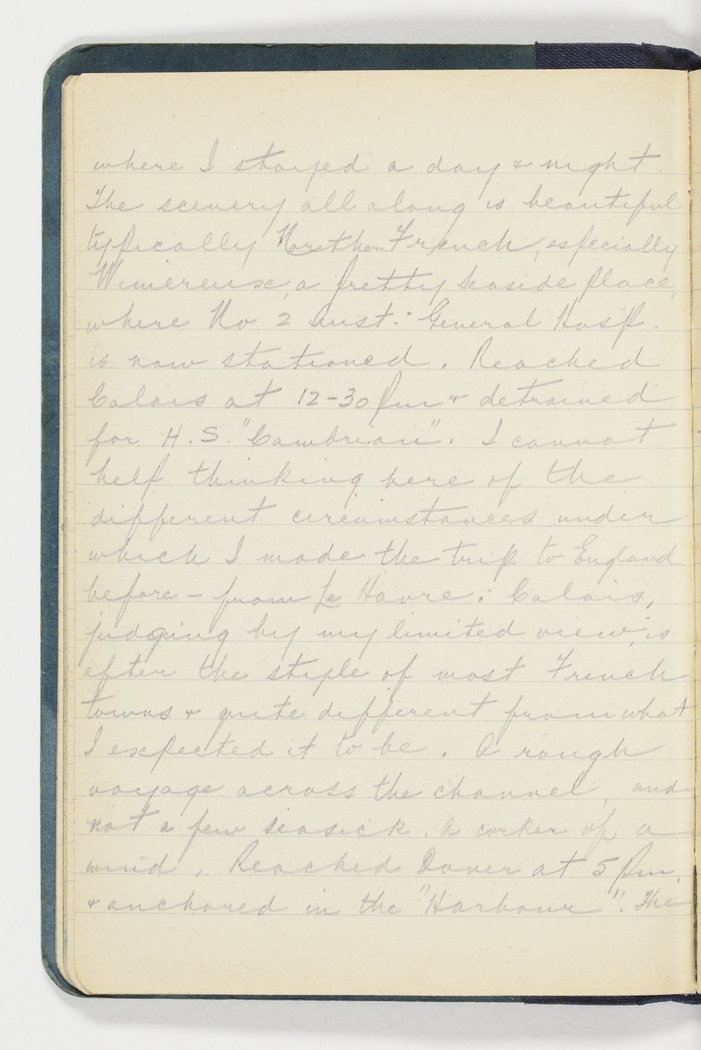 where I stayed a day & night.
The scenery all along is beautiful
typically Northern French, especially
Wimereux, a pretty seaside place,
where No 2 Aust. General Hosp.
is now stationed. Reached
Calais at 12-30 pm & detrained
for H.S. "Cambrian". I cannot
help thinking here of the
different circumstances under
which I made the trip to England
before - from Le Havre. Calais,
judging by my limited view, is
after the style of most French
towns & quite different from what
I expected it to be. A rough
voyage across the channel, and
not a few seasick. A corker of a
wind. Reached Dover at 5 pm.
& anchored in the "Harbour". The